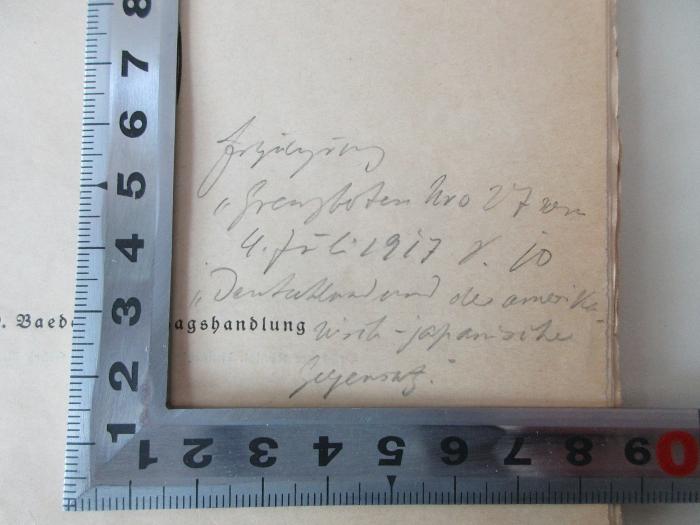 „Grenzboten Nro 27 vom
4. Juli 1917 S. 10
„Deutschland und der amerika-
nisch-japanische
Gegensatz."
. Baed agshandlung
8
7
6
5
4
3
2
1
1 2 3 4 5 6 7 8 9 0